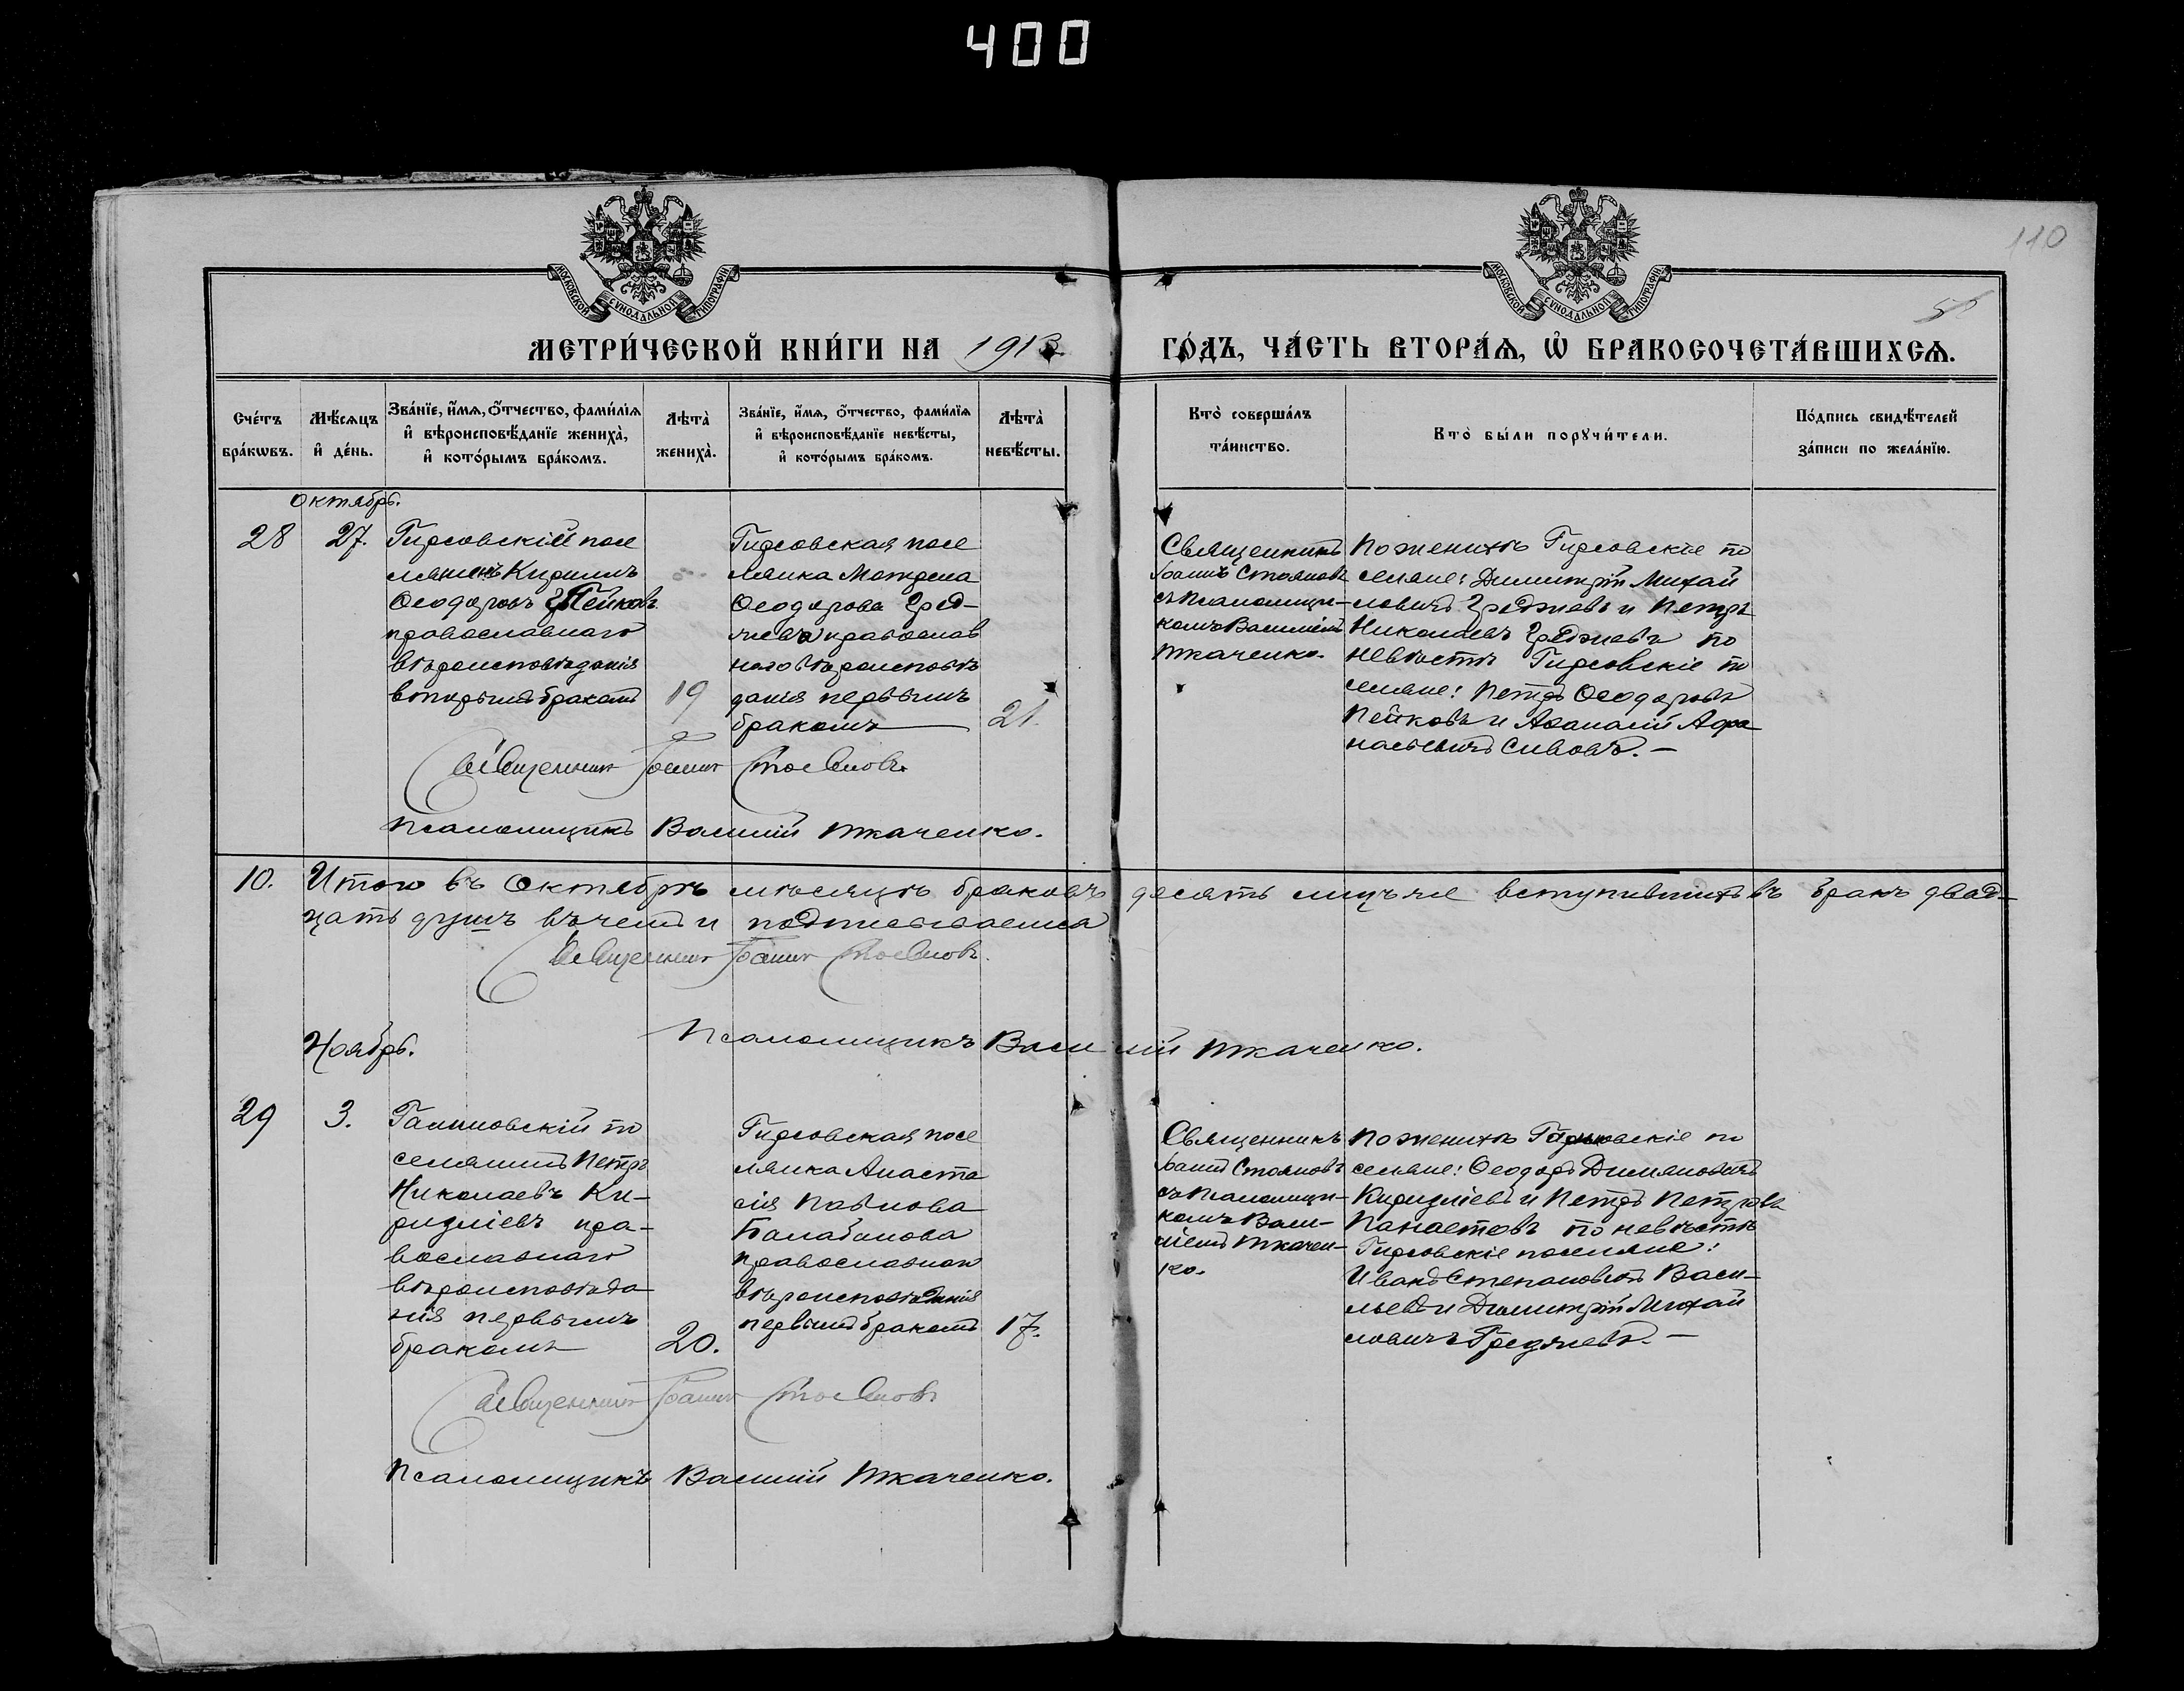 400
110
МОСКОВСКОЙ СѴНОДАЛЬНОЙ ТИПОГРАФІИ
МОСКОВСКОЙ СѴНОДАЛЬНОЙ ТИПОГРАФІИ
МЕТРИ́ЧЕСКОЙ КНИ́ГИ НА 1913 ГО́ДЪ, ЧА́СТЬ ВТОРА́Ѧ, Ѡ҆ БРАКОСОЧЕТА́ВШИХСѦ.
Сче́тъ
бра́кѡвъ.
Мѣ́сѧцъ
и҆ де́нь.
Зва́нїе, и҆́мѧ, ѻ҆́тчество, фами́лїѧ
и҆ вѣроисповѣ́данїе жениха̀,
и҆ кото́рымъ бра́комъ.
Лѣта̀
жениха̀.
Зва́нїе, и҆́мѧ, ѻ҆́тчество, фами́лїѧ
и҆ вѣроисповѣ́данїе невѣ́сты,
и҆ кото́рымъ бра́комъ.
Лѣта̀
невѣ́сты.
Кто̀ соверша́лъ
та́инство.
Кто̀ бы́ли порꙋчи́тели.
По́дпись свидѣ́телей
за́писи по жела́нїю.
Октябрь.
28
27.
Гирсовскій посе
лянинъ Кириллъ
Ѳеодоровъ Пейковъ
православнаго
вѣроисповѣданія
вторымъ бракомъ
19
Гирсовская посе
лянка Матрона
Ѳеодорова Гред-
жева православ
наго вѣроисповѣ
данія первымъ
бракомъ
21.
Священникъ
Іоаннъ Стояновъ
съ псаломщи-
комъ Василіемъ
Ткаченко.
По женихѣ Гирсовскіе по
селяне: Димитрій Михай
ловичъ Греджевъ и Петръ
Николаевъ Греджевъ по
невѣстѣ Гирсовскіе по
селяне: Петръ Ѳеодоровъ
Пейковъ и Аѳанасій Афа
насьевичъ Сивовъ.—
Священникъ Іоаннъ Стояновъ.
Псаломщикъ Василій Ткаченко.
10. Итого въ Октябрѣ мѣсяцѣ браковъ десять лицъ же вступившихъ въ бракъ двад-
цать душъ въ чемъ и подписываемся
Священникъ Іоаннъ Стояновъ.
Псаломщикъ Василій Ткаченко.
Ноябрь.
29
3.
по
селянинъ Петръ
Николаевъ Ки-
ридліевъ пра-
вославнаго
вѣроисповѣда
нія первымъ
бракомъ
20.
Гирсовская посе
лянка Анаста
сія Павлова
Балабанова
православнаго
вѣроисповѣданія
первымъ бракомъ
17.
Священникъ
Іоаннъ Стояновъ
съ псаломщи-
комъ Васи-
ліемъ Ткачен-
ко.
По женихѣ по
селяне: Ѳеодоръ Димановичъ
Киридліевъ и Петръ Петровъ
Панаетовъ по невѣстѣ
Гирсовскіе поселяне:
Иванъ Степановичъ Васи-
льевъ и Димитрій Михай
ловичъ Греджевъ.—
Священникъ Іоаннъ Стояновъ
Псаломщикъ Василій Ткаченко.